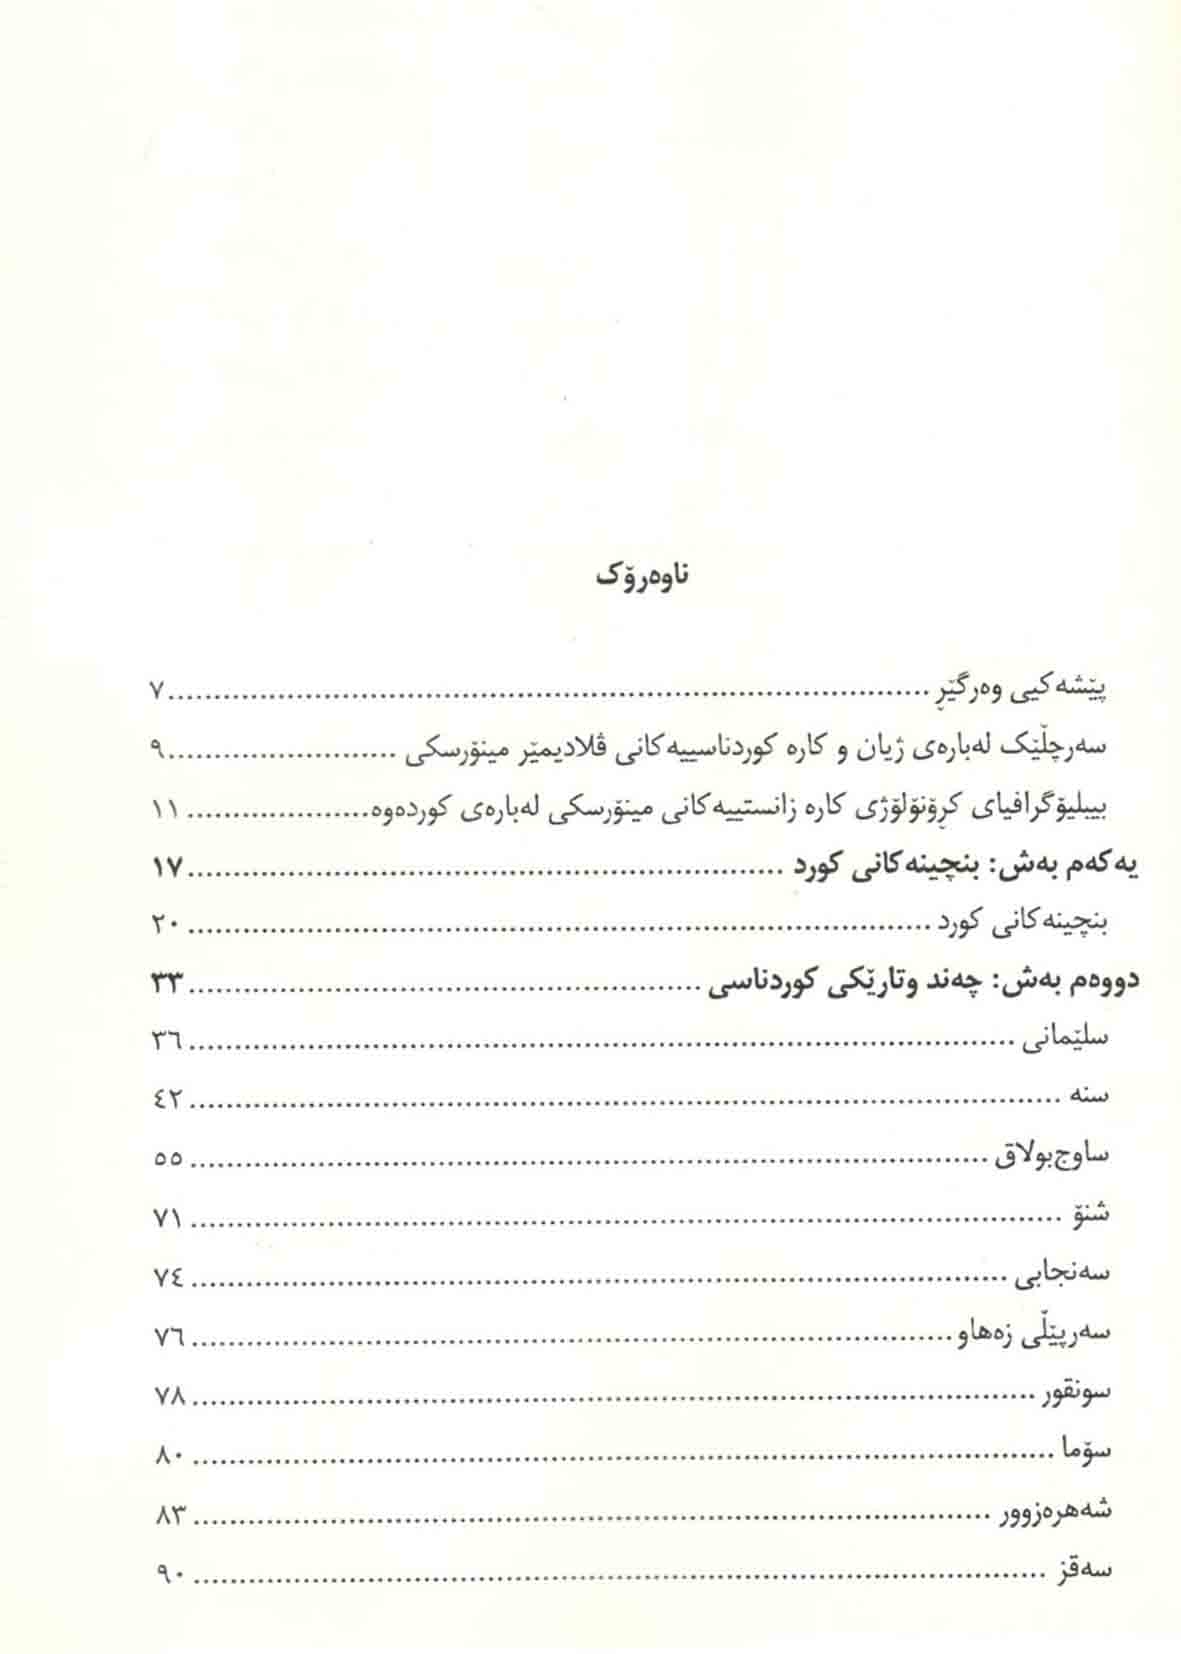 ناوەرۆک
پێشەکیی وەرگێڕ ................................................................ ٧
سەرچڵێک لەبارەی ژیان و کارە کوردناسییەکانی ڤلادیمێر مینۆرسکی ........................ ٩
بیبلیۆگرافیای کڕۆنۆلۆژی کارە زانستییەکانی مینۆرسکی لەبارەی کوردەوە.................... ١١
یەکەم بەش: بنچینەکانی کورد ................................................................ ١٧
بنچینەکانی کورد ................................................................ ٢٠
دووەم بەش: چەند وتارێکی کوردناسی ........................................................ ٣٣
سلێمانی ................................................................ ٣٦
سنە ................................................................ ٤٢
ساوجبولاق ................................................................ ٥٥
شنۆ ................................................................ ٧١
سەنجابی ................................................................ ٧٤
سەرپێڵی زەهاو ................................................................ ٧٦
سونقور ................................................................ ٧٨
سۆما ................................................................ ٨٠
شەهرەزوور ................................................................ ٨٣
سەقز ................................................................ ٩٠